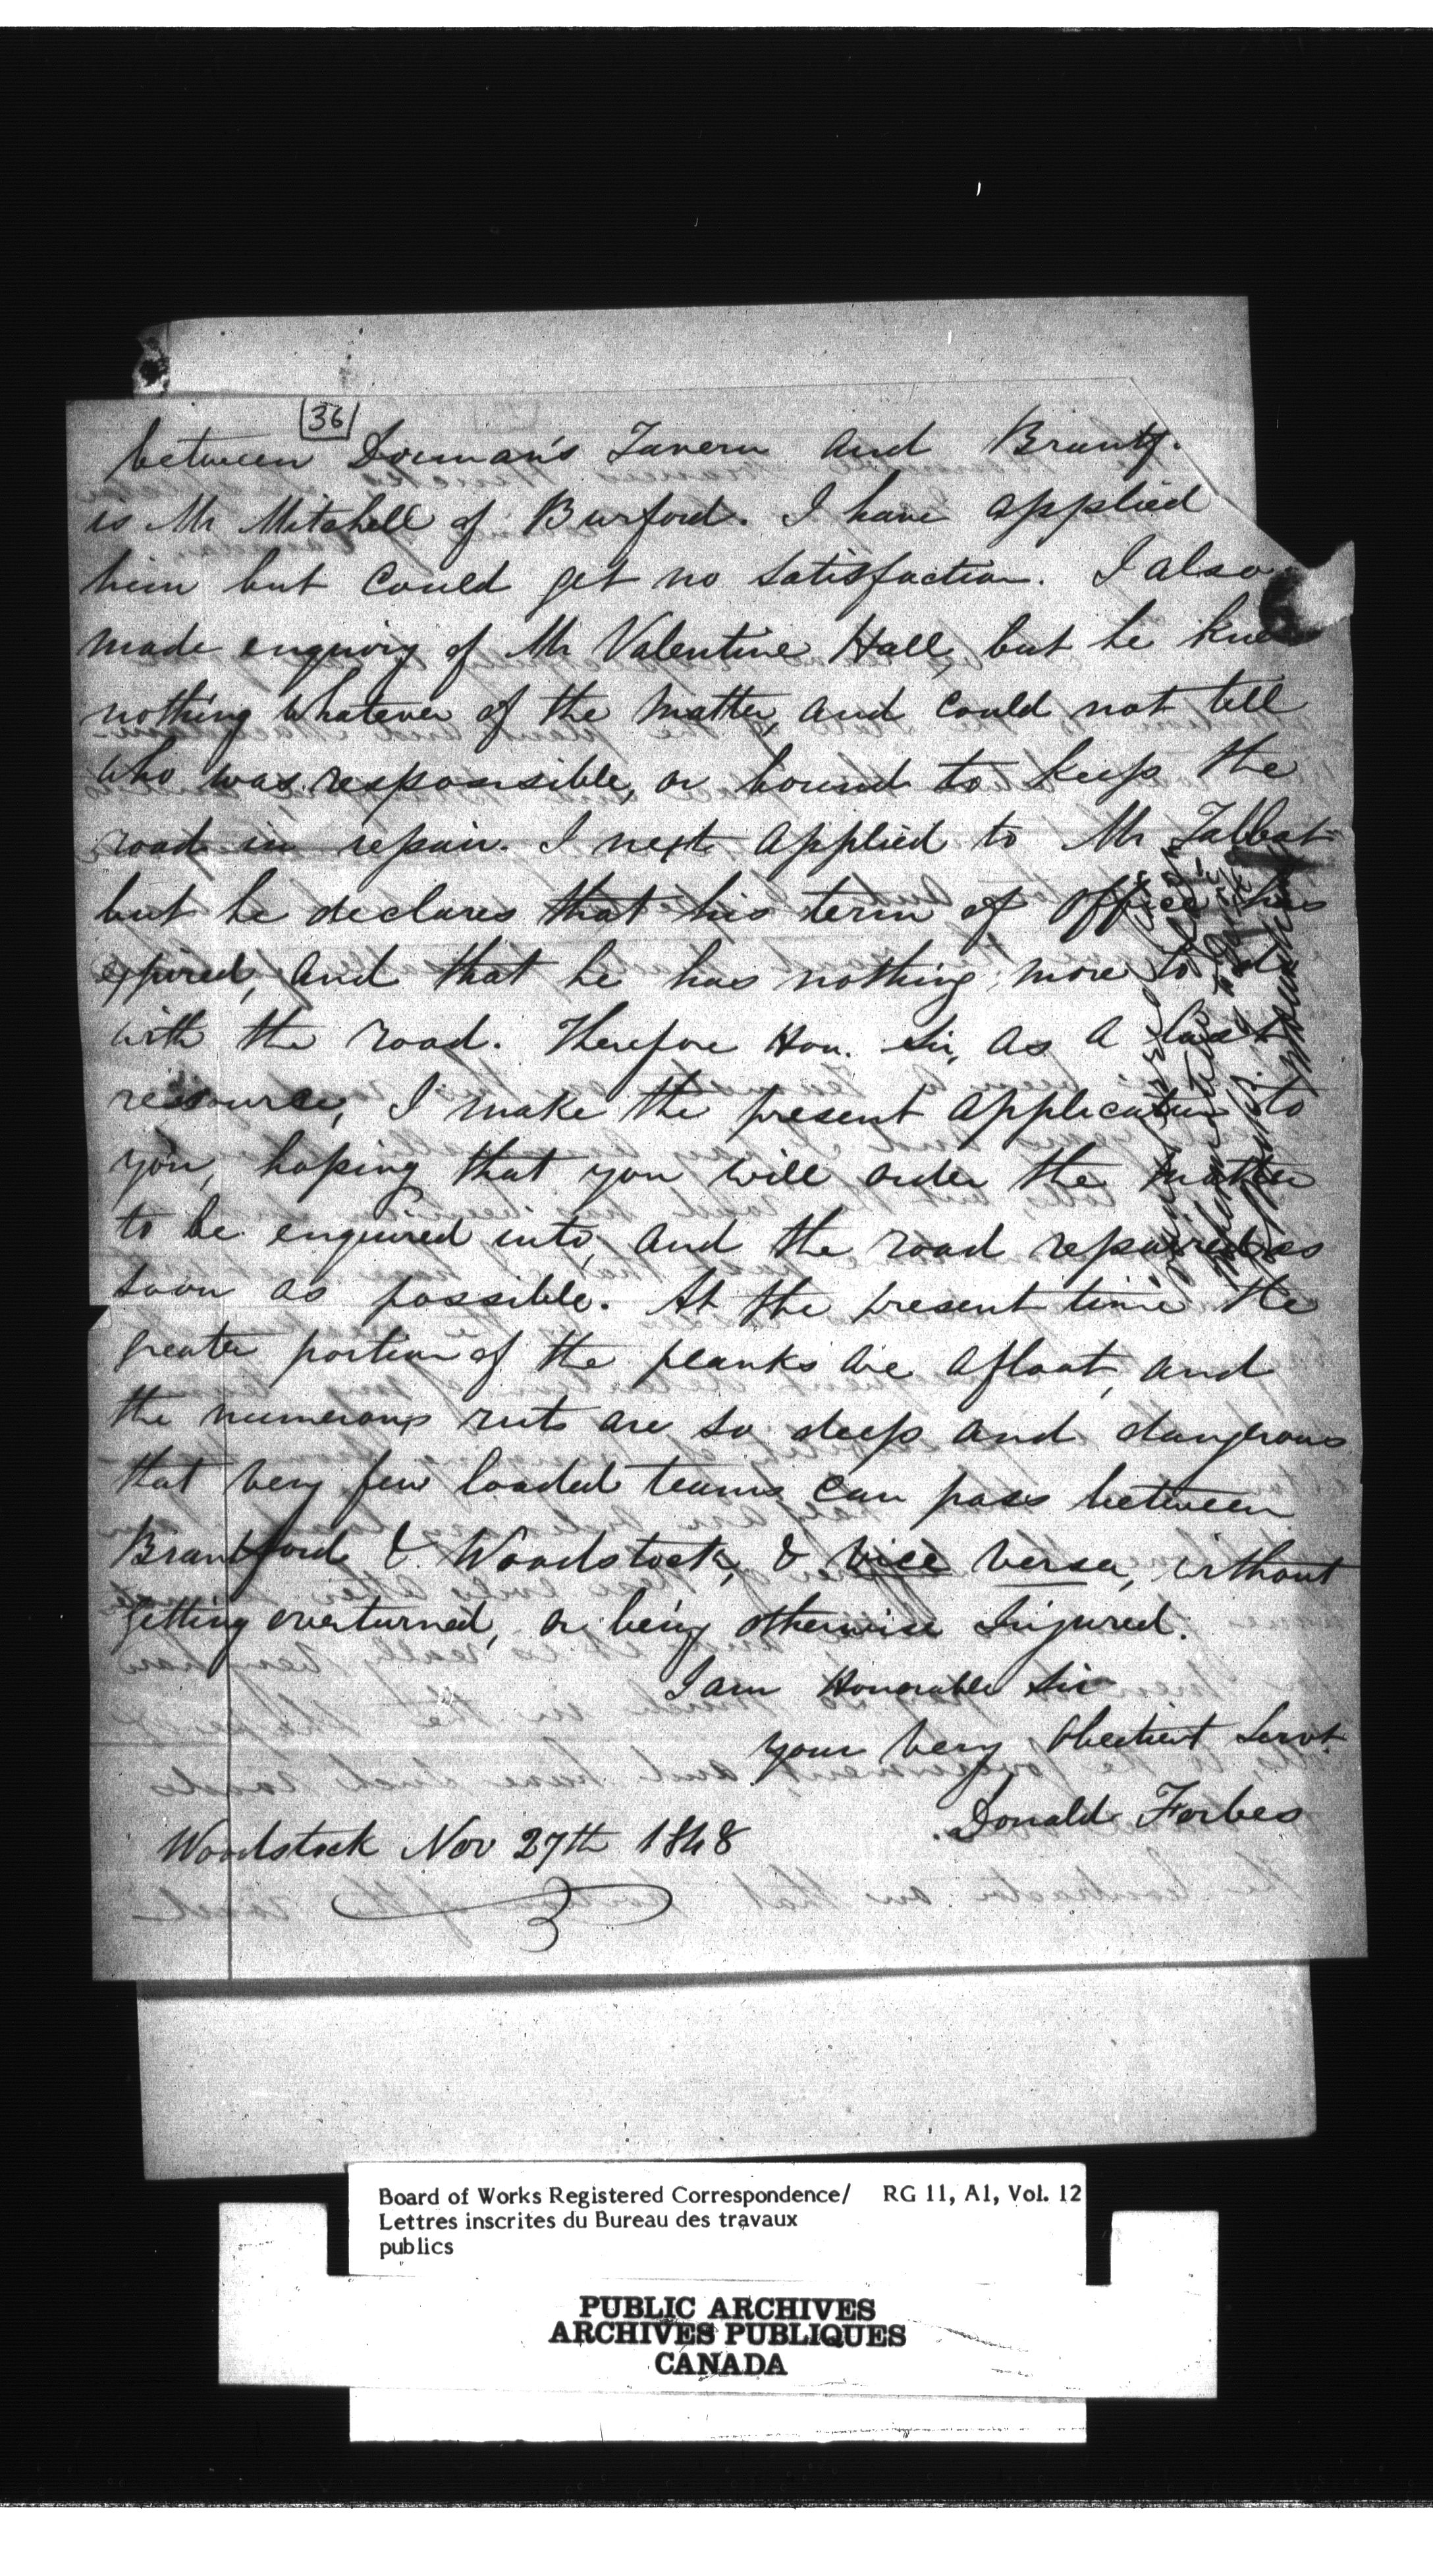 36
between Dorman's Tavern and Brantf.
is Mr Mitchell of Burford. I have applied
him but could get no satisfaction. I also
made enquiry of Mr Valentine Hall, but he knew
nothing whatever of the matter, and could not tell
who was responsible, or bound to keep the
road in repair. I next applied to Mr Talbot
but he declares that his term of office has
expired, and that he has nothing more to do
with the road. Therefore Hon. Sir, as a last
resource, I make the present application to
you, hoping that you will order the matter
to be enquired into, and the road repaired as
soon as possible. At the present time the
greater portion of the planks are afloat, and
the numerous ruts are so deep and dangerous
that very few loaded teams can pass between
Brantford & Woodstock, & vice versa, without
getting overturned, or being otherwise Injured.
I am Honorable Sir
your very obedient Servt.
Donald Forbes
Woodstock Nov 27th 1848
Board of Works Registered Correspondence/ RG 11, A1, Vol. 12
Lettres inscrites du Bureau des travaux
publics
PUBLIC ARCHIVES
ARCHIVES PUBLIQUES
CANADA